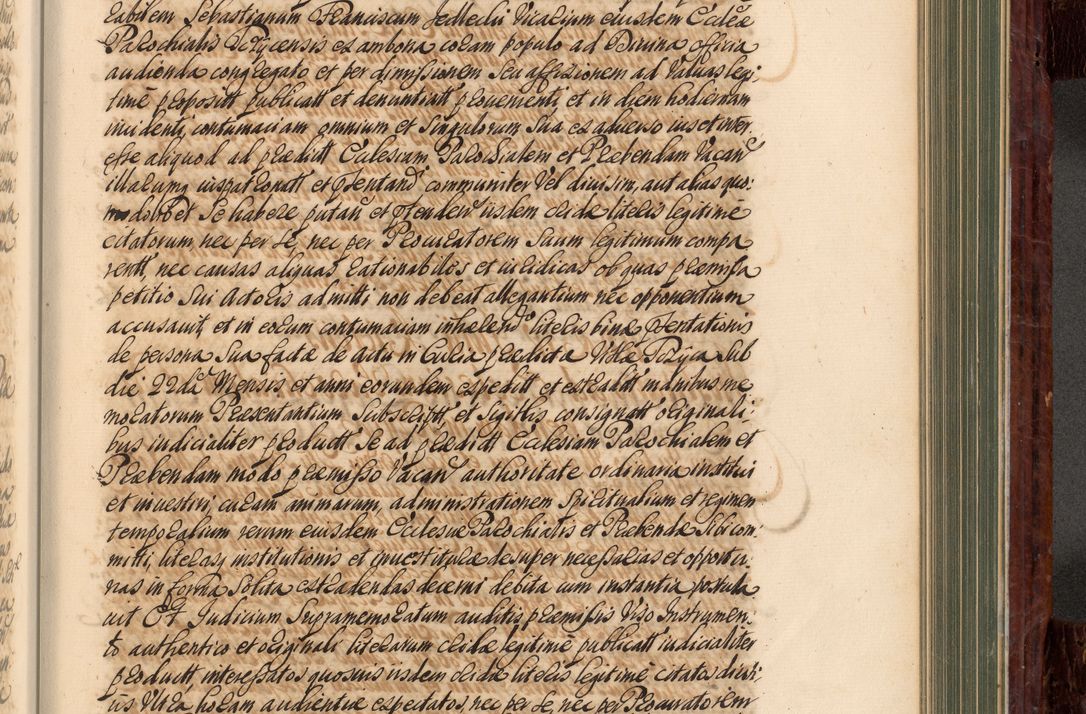 rabilem Sebastianum Franciscum Jedlecki Vicarium eiusdem Eccleæ
Parochialis Pozycensis ex ambona coram populo ad Divina officia
audienda congregato et per dimissionem seu affixionem ad Valvas legi:
timè propositt publicatt et denuntiatt provenienti et in diem hodiernam
incidenti, contumaciam omnium et singulorum sua ex adverso ius et inter
esse aliquod ad prædict Ecclesiam Parochialem et Præbendam vacan
illarumq iuspatronatt et psentand communiter vel divisim, aut alias quo:
modolibet se habere putan et ptenden iisdem cridæ literis legitimè
citatorum, nec per se, nec per Procuratorem suum legitimum compa
rentt, nec causas aliquas rationabiles et iuridicas ob quas præmissa
petitio sui Actoris admitti non debeat allegantium nec opponentium
accusavit et in eorum contumaciam inhærend literis binæ psentationis
de persona sua factæ de actu in Curia prædicta Villæ Pozyca sub
die 22da Mensis et anni eorundem expeditt et extraditt manibus me
moratorum Præsentantium subscriptt et Sigillis consignatt originali:
bus iudicialiter productt se ad prædictt Ecclesiam Parochialem et
Præbendam modo præmisso vacan authoritate ordinaria institui
et investiri, curam animarum, administrationem Spiritualium et regimen
temporalium rerum eiusdem Ecclesiæ Parochialis et Præbendæ sibi com:
mitti, literasq institutionis et investituræ desuper necessarias et opportu:
nas in forma solita extradendas decerni debita cum instantia postula
vit Et Judicium Supramemoratum auditis præmissis Viso Instrumen:
to authentico et originali literarum cridæ legitimè publicatt iudicialiter
productt, interessatos quosvis iisdem cridæ literis legitimè citatos diuti:
us Ultra horam audientiæ expectatos, nec per se, nec per Procuratorem